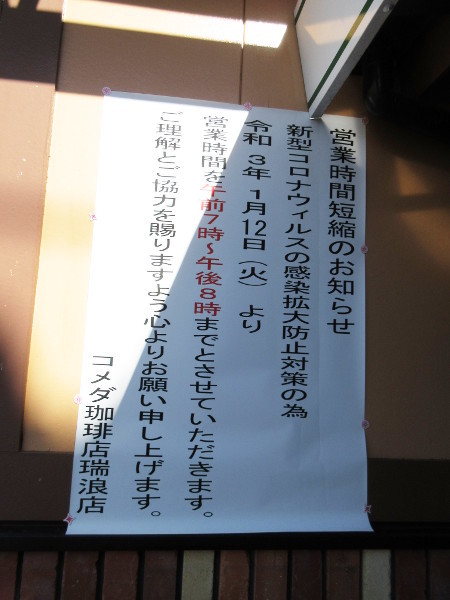 営業時間短縮のお知らせ
新型コロナウィルスの感染拡大防止対策の為
令和３年１月12日（火）より
営業時間を午前７時～午後８時までとさせていただきます。
ご理解とご協力を賜りますよう心よりお願い申し上げます。
コメダ珈琲店瑞浪店